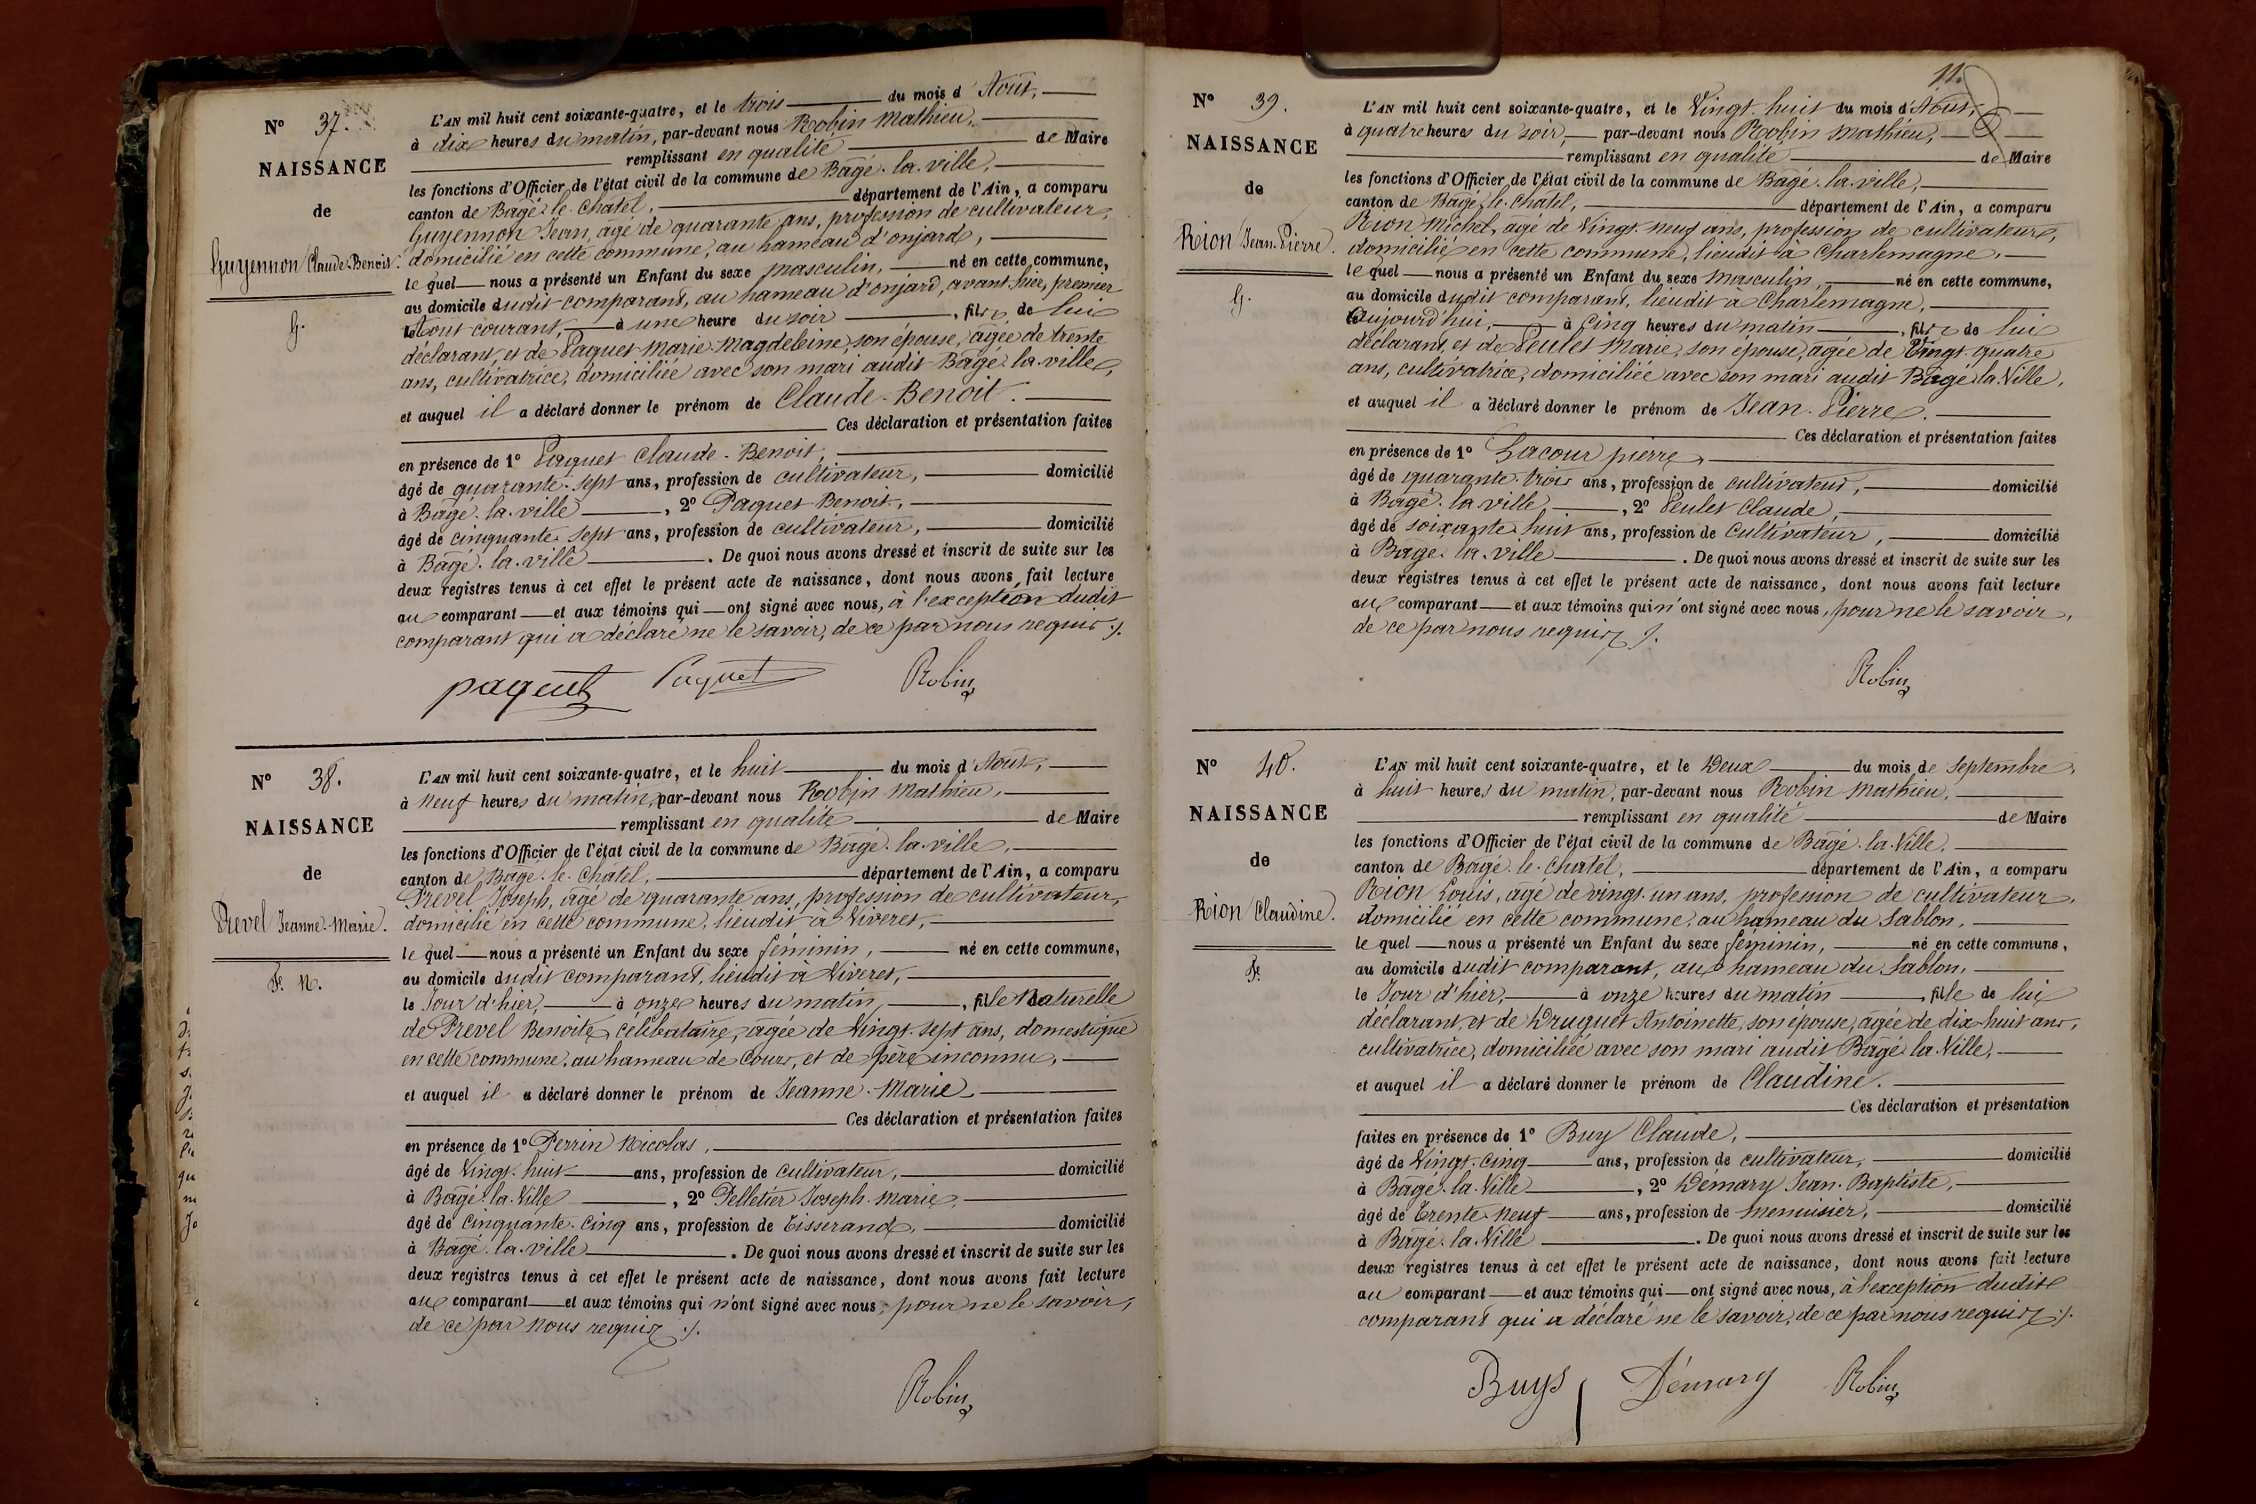 N° 37.
NAISSANCE
de
Guyennon Claude-Benoit.
G.
L'AN mil huit cent soixante-quatre, et le trois du mois d'Août,
à dix heures du matin, par-devant nous Robin Mathieu,
remplissant en qualité de Maire
les fonctions d'Officier de l'état civil de la commune de Bâgé-la-ville,
canton de Bâgé-le-Châtel, département de l'Ain, a comparu
Guyennon Jean, âgé de quarante ans, profession de cultivateur,
domicilié en cette commune, au hameau d'onjard,
le quel nous a présenté un Enfant du sexe masculin, né en cette commune,
au domicile dudit comparant, au hameau d'onjard, avant-hier, premier
Août courant, à une heure du soir, fils de lui
déclarant, et de Paquet Marie-Magdeleine, son épouse, âgée de trente
ans, cultivatrice, domiciliée avec son mari audit Bâgé-la-ville,
et auquel il a déclaré donner le prénom de Claude-Benoit.
Ces déclaration et présentation faites
en présence de 1° Paquet Claude-Benoit,
âgé de quarante-sept ans, profession de cultivateur, domicilié
à Bâgé-la-ville, 2° Paquet Benoit,
âgé de cinquante-sept ans, profession de cultivateur, domicilié
à Bâgé-la-ville. De quoi nous avons dressé et inscrit de suite sur les
deux registres tenus à cet effet le présent acte de naissance, dont nous avons fait lecture
au comparant et aux témoins qui ont signé avec nous, à l'exception dudit
comparant qui a déclaré ne le savoir, de ce par nous requis ./.
paquet Paquet Robin
N° 38.
NAISSANCE
de
Prevel Jeanne-Marie.
F. N.
L'AN mil huit cent soixante-quatre, et le huit du mois d'Août,
à neuf heures du matin, par-devant nous Robin Mathieu,
remplissant en qualité de Maire
les fonctions d'Officier de l'état civil de la commune de Bâgé-la-ville,
canton de Bâgé-le-Châtel, département de l'Ain, a comparu
Prevel Joseph, âgé de quarante ans, profession de cultivateur,
domicilié en cette commune, lieudit à Viveret,
le quel nous a présenté un Enfant du sexe féminin, né en cette commune,
au domicile dudit comparant, lieudit à Viveret,
le Jour d'hier, à onze heures du matin, fille Naturelle
de Prevel Benoite, célibataire, âgée de Vingt-sept ans, domestique
en cette commune, au hameau de Cours, et de père inconnu,
et auquel il a déclaré donner le prénom de Jeanne-Marie
Ces déclaration et présentation faites
en présence de 1° Perrin Nicolas,
âgé de Vingt-huit ans, profession de cultivateur, domicilié
à Bâgé-la-Ville, 2° Pelletier Joseph-Marie,
âgé de Cinquante-Cinq ans, profession de Tisserand, domicilié
à Bâgé-la-ville. De quoi nous avons dressé et inscrit de suite sur les
deux registres tenus à cet effet le présent acte de naissance, dont nous avons fait lecture
au comparant et aux témoins qui n'ont signé avec nous, pour ne le savoir,
de ce par nous requis ./.
Robin
11.
N° 39.
NAISSANCE
de
Rion Jean-Pierre.
G.
L'AN mil huit cent soixante-quatre, et le Vingt-huit du mois d'Août,
à quatre heures du soir, par-devant nous Robin Mathieu,
remplissant en qualité de Maire
les fonctions d'Officier de l'état civil de la commune de Bâgé-la-ville,
canton de Bâgé-le-Châtel, département de l'Ain, a comparu
Rion Michel, âgé de Vingt-neuf ans, profession de cultivateur,
domicilié en cette commune, lieudit à Charlemagne,
le quel nous a présenté un Enfant du sexe masculin, né en cette commune,
au domicile dudit comparant, lieudit à Charlemagne,
Aujourd'hui, à Cinq heures du matin, fils de lui
déclarant, et de Peulet Marie, son épouse, âgée de Vingt-quatre
ans, cultivatrice, domiciliée avec son mari audit Bâgé-la-Ville,
et auquel il a déclaré donner le prénom de Jean-Pierre.
Ces déclaration et présentation faites
en présence de 1° Lacour pierre,
âgé de quarante-trois ans, profession de cultivateur, domicilié
à Bâgé-la-ville, 2° Peulet Claude,
âgé de soixante-huit ans, profession de Cultivateur, domicilié
à Bâgé-la-ville. De quoi nous avons dressé et inscrit de suite sur les
deux registres tenus à cet effet le présent acte de naissance, dont nous avons fait lecture
au comparant et aux témoins qui n'ont signé avec nous, pour ne le savoir,
de ce par nous requis ./.
Robin
N° 40.
NAISSANCE
de
Rion Claudine.
F.
L'AN mil huit cent soixante-quatre, et le Deux du mois de Septembre,
à huit heures du matin, par-devant nous Robin Mathieu,
remplissant en qualité de Maire
les fonctions d'Officier de l'état civil de la commune de Bâgé-la-Ville,
canton de Bâgé-le-Châtel, département de l'Ain, a comparu
Rion Louis, âgé de vingt-un ans, profession de cultivateur,
domicilié en cette commune, au hameau du Sablon,
le quel nous a présenté un Enfant du sexe féminin, né en cette commune,
au domicile dudit comparant, au hameau du Sablon,
le Jour d'hier, à onze heures du matin, fille de lui
déclarant, et de Druguet Antoinette, son épouse, âgée de dix-huit ans,
cultivatrice, domiciliée avec son mari audit Bâgé-la-Ville,
et auquel il a déclaré donner le prénom de Claudine.
Ces déclaration et présentation
faites en présence de 1° Buy Claude,
âgé de Vingt-Cinq ans, profession de cultivateur, domicilié
à Bâgé-la-Ville, 2° Démary Jean-Baptiste,
âgé de Trente-Neuf ans, profession de menuisier, domicilié
à Bâgé-la-Ville. De quoi nous avons dressé et inscrit de suite sur les
deux registres tenus à cet effet le présent acte de naissance, dont nous avons fait lecture
au comparant et aux témoins qui ont signé avec nous, à l'exception dudit
comparant qui a déclaré ne le savoir, de ce par nous requis ./.
Buys Démary Robin